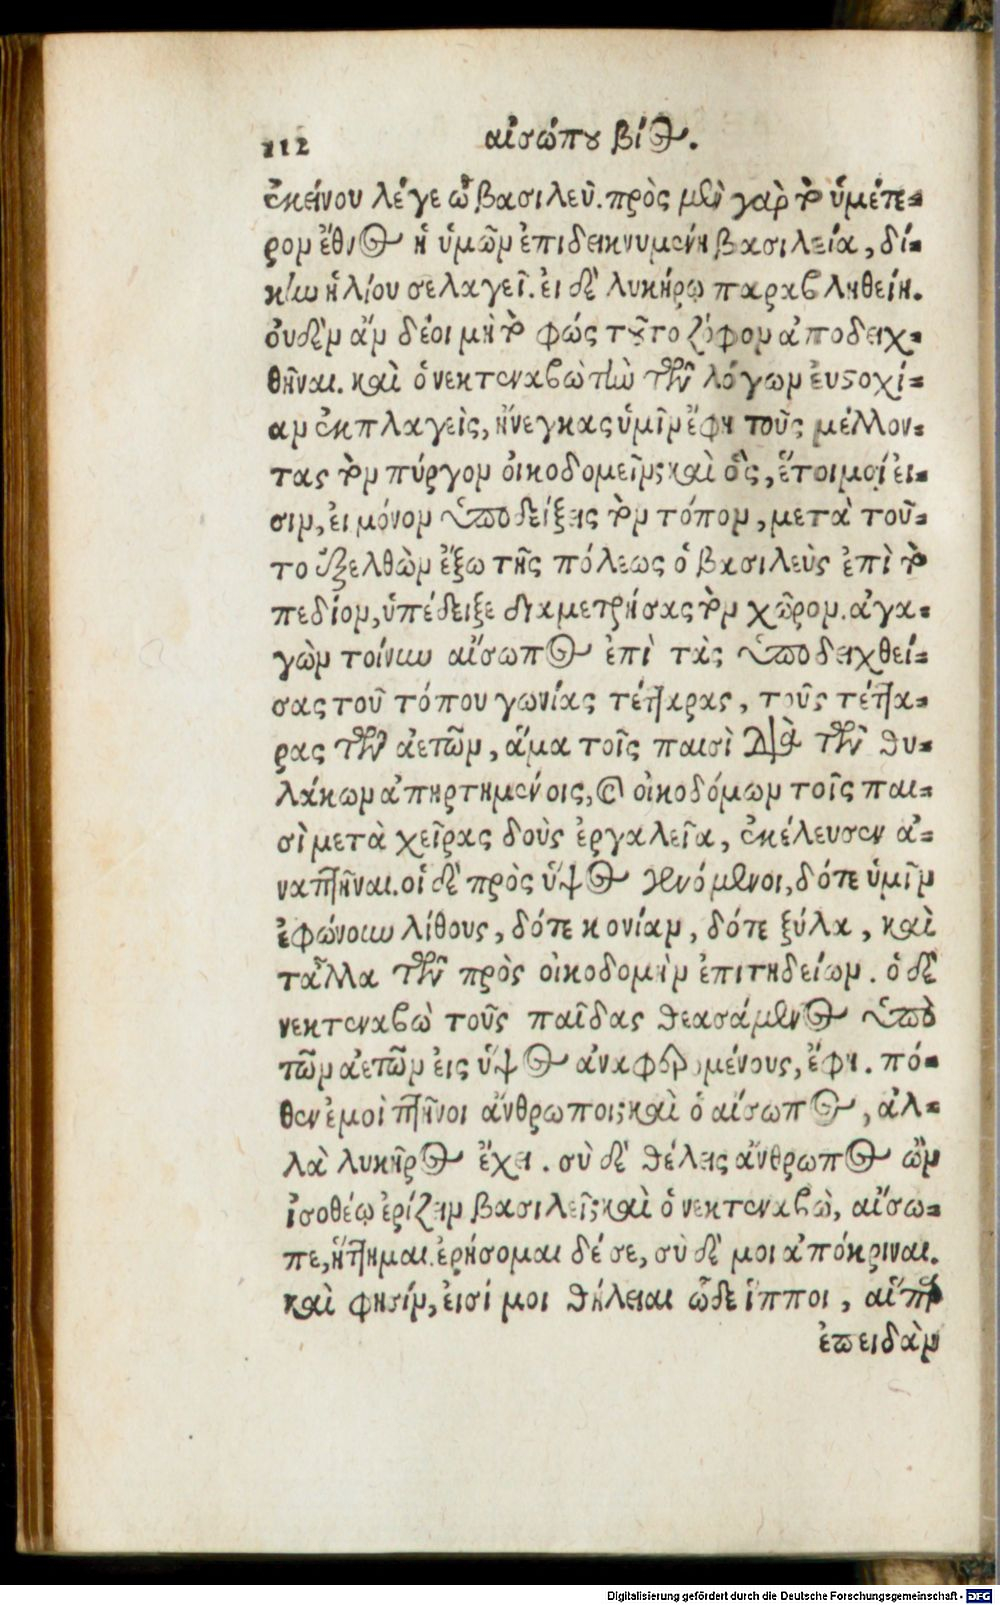 112 αἰσώπου βίος.
ἐκείνου λέγε ὦ βασιλεῦ. πρὸς μὲν γὰρ τὸ ὑμέτε-
ρον ἔθνος ἡ ὑμῶν ἐπιδεικνυμένη βασιλεία, δί-
κην ἡλίου σελαγεῖ. εἰ δὲ λυκήρῳ παραβληθείη.
οὐδὲν ἂν δέοι μὴ τὸ φώς τοῦτο ζόφον ἀποδειχ-
θῆναι. καὶ ὁ νεκτεναβὼ τὴν τῶν λόγων εὐστοχί-
αν ἐκπλαγεὶς, ἤνεγκας ὑμῖν ἔφη τοὺς μέλλον-
τας τὸν πύργον οἰκοδομεῖν; καὶ ὃς, ἕτοιμοί εἰ-
σιν, εἰ μόνον ὑποδείξεις τὸν τόπον, μετὰ τοῦ-
το ἐξελθὼν ἔξω τῆς πόλεως ὁ βασιλεὺς ἐπὶ τὸ
πεδίον, ὑπέδειξε διαμετρήσας τὸν χῶρον. ἀγα-
γὼν τοίνυν αἴσωπος ἐπὶ τὰς ὑποδειχθεί-
σας τοῦ τόπου γωνίας τέτταρας, τοὺς τέττα-
ρας τῶν ἀετῶν, ἅμα τοῖς παισὶ διὰ τῶν θυ-
λάκων ἀπηρτημένοις, καὶ οἰκοδόμων τοῖς παι-
σὶ μετὰ χεῖρας δοὺς ἐργαλεῖα, ἐκέλευσεν ἀ-
ναπτῆναι. οἱ δὲ πρὸς ὕψος γενόμενοι, δότε ὑμῖν
ἐφώνουν λίθους, δότε κονίαν, δότε ξύλα, καὶ
τἆλλα τῶν πρὸς οἰκοδομὴν ἐπιτηδείων. ὁ δὲ
νεκτεναβὼ τοὺς παῖδας θεασάμενος ὑπὸ
τῶν ἀετῶν εἰς ὕψος ἀναφερομένους, ἔφη. πό-
θεν ἐμοὶ πτηνοι ἄνθρωποι; καὶ ὁ αἴσωπος, ἀλ-
λὰ λυκῆρος ἔχει. σὺ δὲ θέλεις ἄνθρωπος ὢν
ἰσοθέῳ ἐρίζειν βασιλεῖ; καὶ ὁ νεκτεναβὼ, αἴσω-
πε, ἥττημαι. ἐρήσομαι δέ σε, σὺ δὲ μοι ἀπόκριναι.
καὶ φησίν, εἰσί μοι θήλειαι ὧδε ἵπποι, αἵπερ
ἐπειδὰν
Digitalisierung gefördert durch die Deutsche Forschungsgemeinschaft - DFG